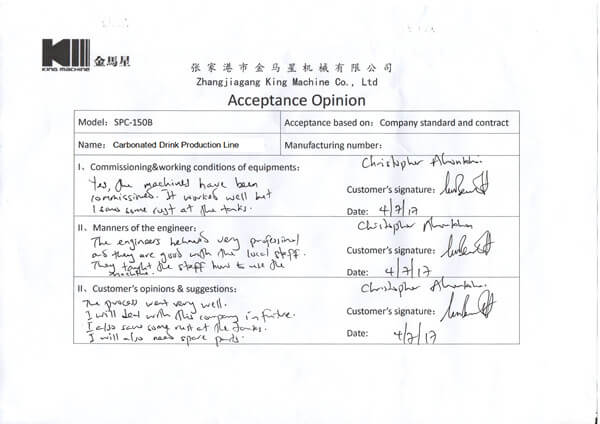 KING MACHINE
金馬星
张家港市金马星机械有限公司
Zhangjiagang King Machine Co., Ltd
Acceptance Opinion
Model: SPC-150B
Acceptance based on: Company standard and contract
Name: Carbonated Drink Production Line
Manufacturing number:
I、Commissioning&working conditions of equipments:
Yes, the machines have been
commissioned. It worked well but
I saw some rust at the tanks.
Christopher
Customer's signature:
Date: 4/7/17
II、Manners of the engineer:
The engineers behaved very professional
and they are good with the local staff.
They taught the staff how to use the
machine.
Christopher
Customer's signature:
Date: 4/7/17
II、Customer's opinions & suggestions:
The process went very well.
I will deal with this company in future.
I also saw some rust at the tanks.
I will also need spare parts.
Christopher
Customer's signature:
Date: 4/7/17